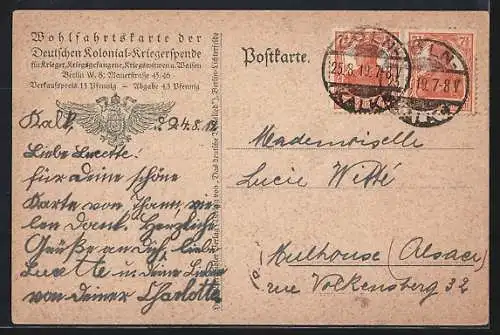 Wohlfahrtskarte der
Deutschen Kolonial-Kriegerspende
für Krieger, Kriegsgefangene, Kriegswitwen u. Waisen
Berlin W. 8. Mauerstraße 45-46
Verkaufspreis 15 Pfennig – Abgabe 43 Pfennig
Postkarte.
25.8.19.7-8V
KALK
CÖLN-
19.7-8V
Kalk, 24.8.19
Liebe Lucette!
Für deine schöne
Karte von Thann, vie-
len Dank. Herzliche
Grüße an Dich, liebe
Lucette u. deine Lieben
von deiner Charlotte
Mademoiselle
Lucie Witté
Mulhouse (Alsace)
rue Volkensberg 32